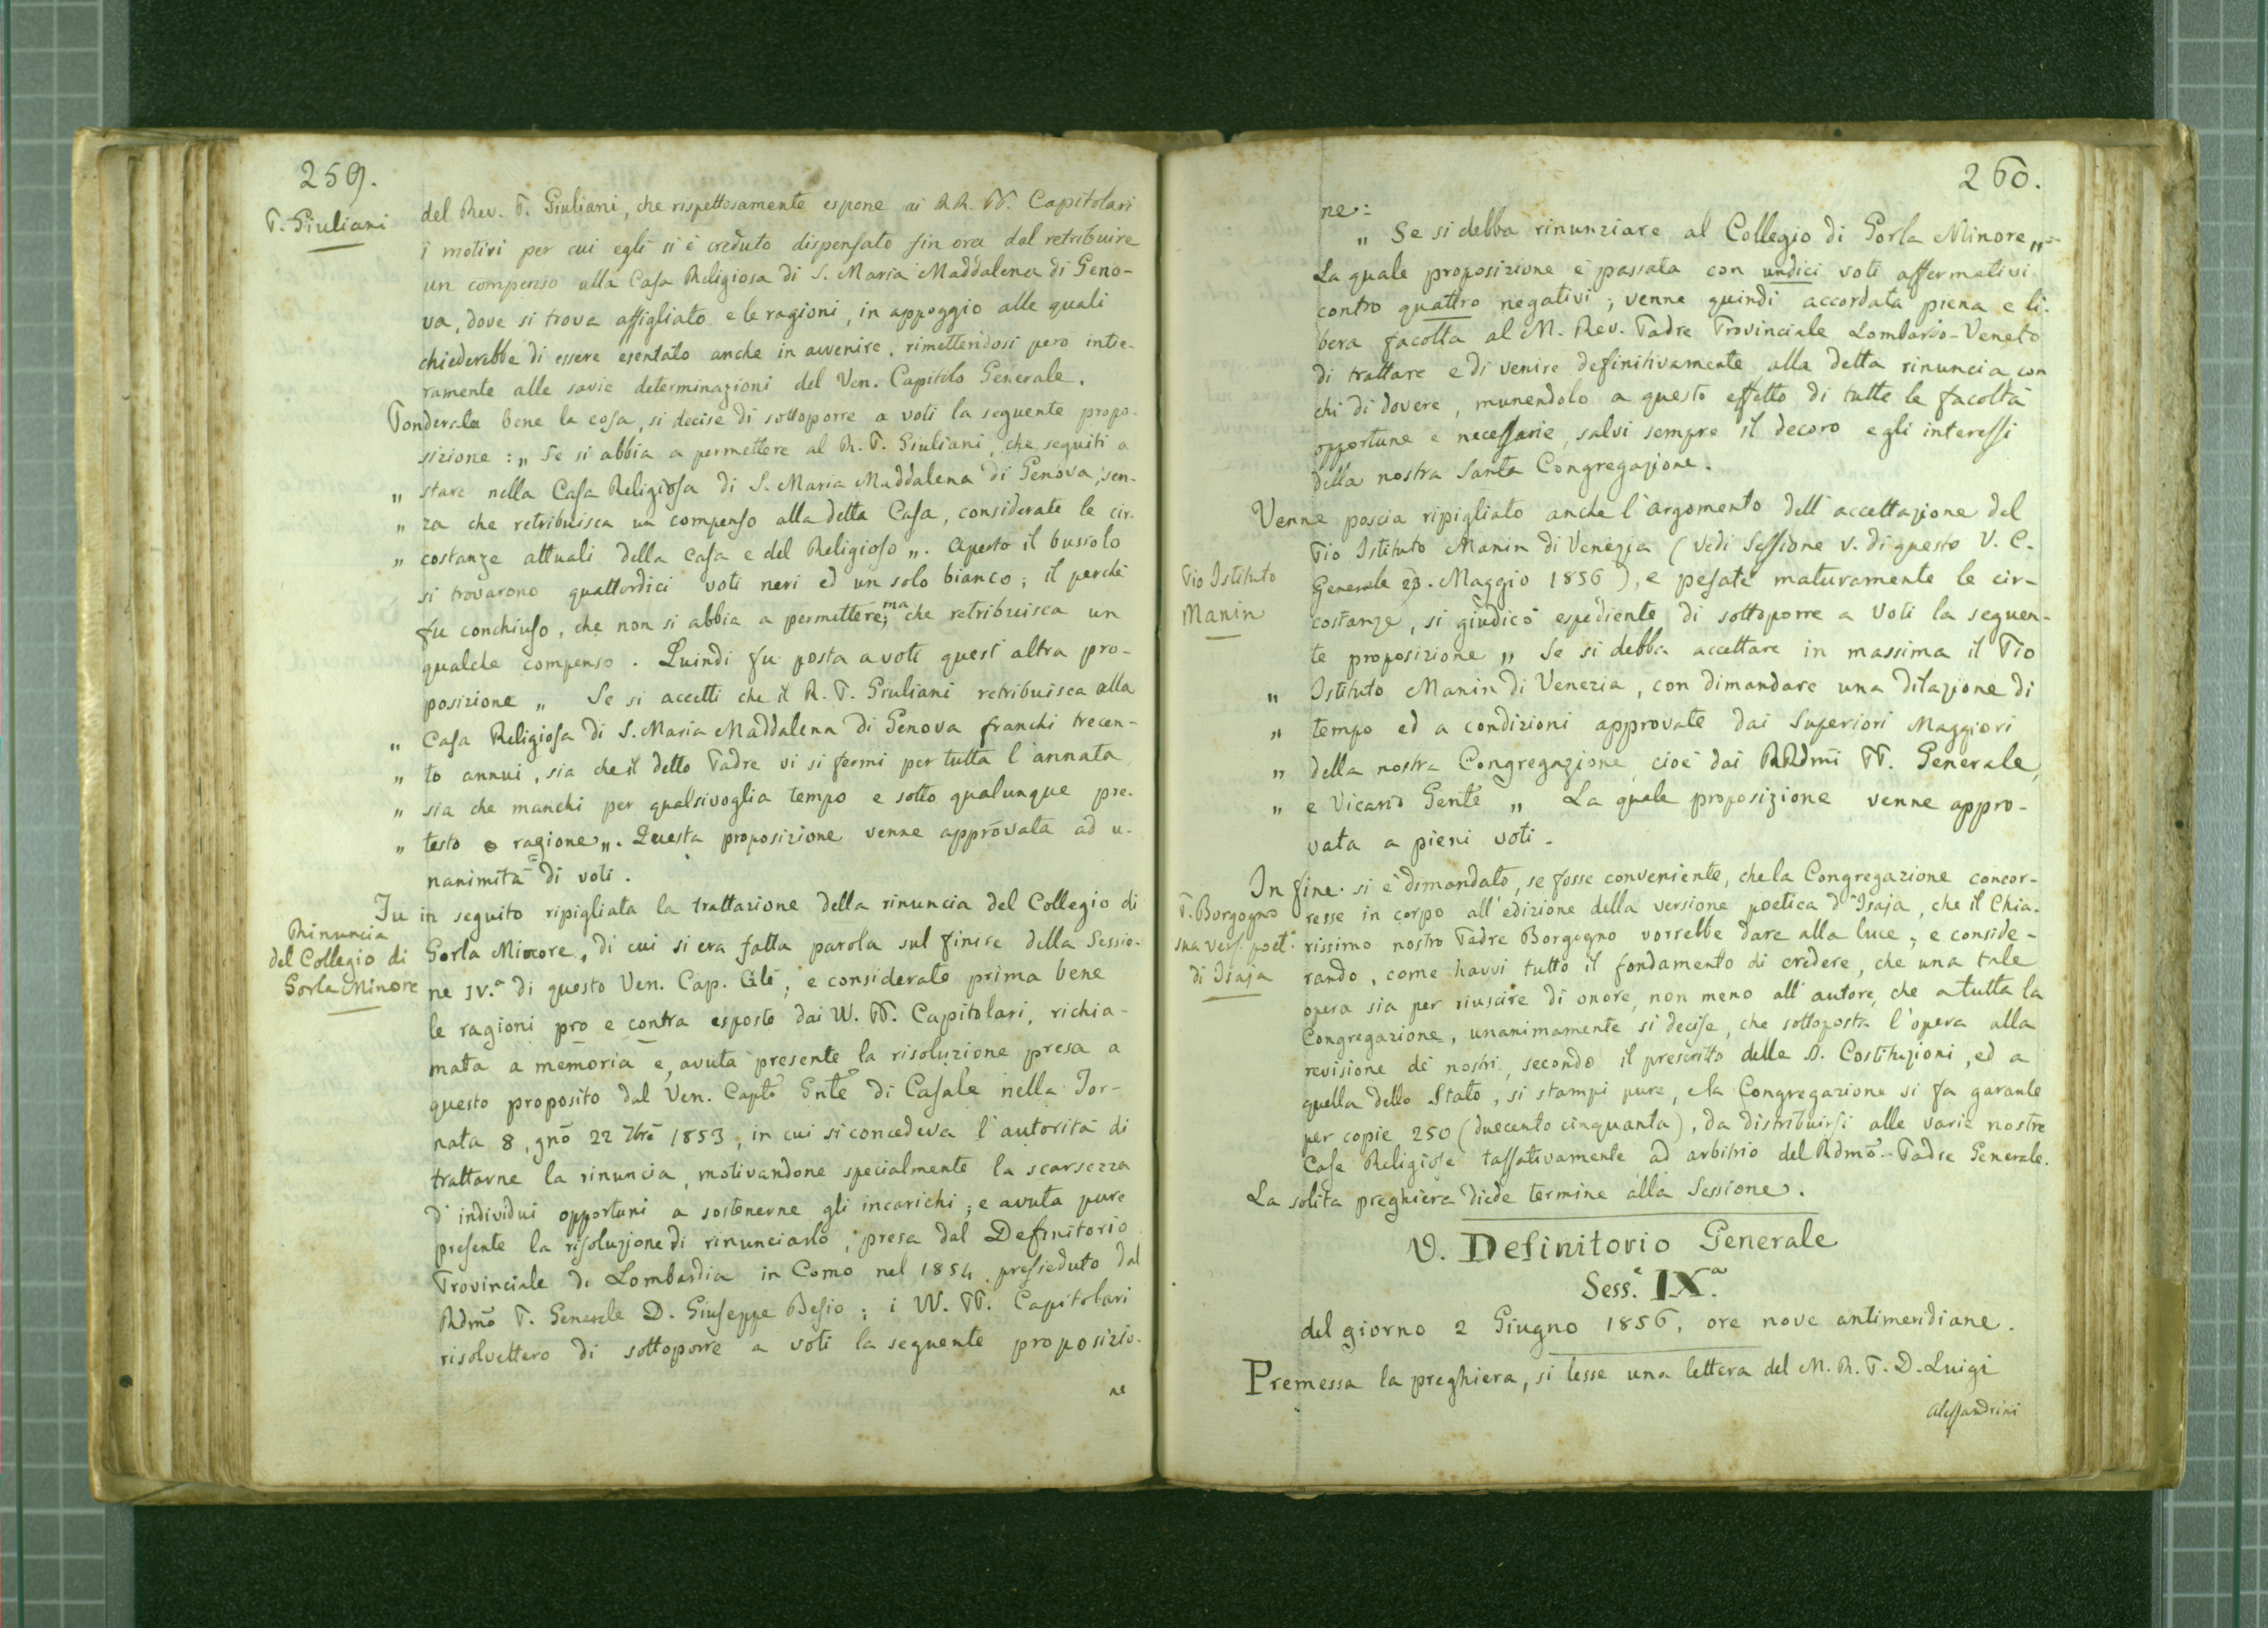 259.
P. Giuliani
del Rev. P. Giuliani, che rispettosamente espone ai RR. PP. Capitolari
i motivi per cui egli si è creduto dispensato fin ora dal retribuire
un compenso alla Casa Religiosa di S. Maria Maddalena di Geno-
va, dove si trova affigliato e le ragioni, in appoggio alle quali
chiederebbe di essere esentato anche in avvenire, rimettendosi però intie-
ramente alle savie determinazioni del Ven. Capitolo Generale.
Ponderata bene la cosa, si decise di sottoporre a voti la seguente propo-
sizione : „ Se si abbia a permettere al R. P. Giuliani, che seguiti a
„ stare nella Casa Religiosa di S. Maria Maddalena di Genova, sen-
„ za che retribuisca un compenso alla detta Casa, considerate le cir-
„ costanze attuali della casa e del Religioso „. Aperto il bussolo
si trovarono quattordici voti neri ed un solo bianco; il perchè
fu conchiuso, che non si abbia a permettere; ma che retribuisca un
qualche compenso. Quindi fu posta a voti quest'altra pro-
posizione „ Se si accetti che il R. P. Giuliani retribuisca alla
„ Casa Religiosa di S. Maria Maddalena di Genova franchi trecen-
„ to annui, sia che il detto Padre vi si fermi per tutta l'annata
„ sia che manchi per qualsivoglia tempo e sotto qualunque pre-
„ testo o ragione „. Questa proposizione venne approvata ad u-
nanimità di voti.
Rinuncia
del Collegio di
Gorla Minore
Fu in seguito ripigliata la trattazione della rinuncia del Collegio di
Gorla Minore, di cui si era fatta parola sul finire della Sessio-
ne IV.a di questo Ven. Cap. Glè; e considerate prima bene
le ragioni pro e contra esposte dai VV. PP. Capitolari, richia-
mata a memoria e, avuta presente la risoluzione presa a
questo proposito dal Ven. Capto Gnle di Casale nella Tor-
nata 8, gno 22 7bre 1853, in cui si concedeva l'autorità di
trattarne la rinuncia, motivandone specialmente la scarsezza
d'individui opportuni a sostenerne gli incarichi; e avuta pure
presente la risoluzione di rinunciarlo, presa dal Definitorio
Provinciale di Lombardia in Como nel 1854, presieduto dal
Rdmo P. Generale D. Giuseppe Besio; i VV. PP. Capitolari
risolvettero di sottoporre a voti la seguente proposizio-
ne
260.
ne:
„ Se si debba rinunziare al Collegio di Gorla Minore „
La quale proposizione è passata con undici voti affermativi
contro quattro negativi; venne quindi accordata piena e li-
bera facoltà al M. Rev. Padre Provinciale Lombardo-Veneto
di trattare e di venire definitivamente alla detta rinuncia con
chi di dovere, munendolo a questo effetto di tutte le facoltà
opportune e necessarie, salvi sempre il decoro e gli interessi
della nostra Santa Congregazione.
Pio Istituto
Manin
Venne poscia ripigliato anche l'argomento dell'accettazione del
Pio Istituto Manin di Venezia (vedi Sessione V. di questo V. C.
Generale 23. Maggio 1856), e pesate maturamente le cir-
costanze, si giudicò espediente di sottoporre a voti la seguen-
te proposizione „ Se si debba accettare in massima il Pio
„ Istituto Manin di Venezia, con dimandare una dilazione di
„ tempo ed a condizioni approvate dai Superiori Maggiori
„ della nostra Congregazione, cioè dai RRdmi PP. Generale,
„ e Vicario Gente „ La quale proposizione venne appro-
vata a pieni voti.
P. Borgogno
sua vers. poet.a
di Isaja
In fine si è dimandato, se fosse conveniente, che la Congregazione concor-
resse in corpo all'edizione della versione poetica d'Isaja, che il Chia-
rissimo nostro Padre Borgogno vorrebbe dare alla luce; e conside-
rando, come havvi tutto il fondamento di credere, che una tale
opera sia per riuscire di onore, non meno all'autore, che a tutta la
Congregazione, unanimamente si decise, che sottoposta l'opera alla
revisione de' nostri, secondo il prescritto delle S. Costituzioni, ed a
quella dello Stato, si stampi pure, e la Congregazione si fa garante
per copie 250 (duecento cinquanta), da distribuirsi alle varie nostre
Case Religiose tassativamente ad arbitrio del Rdmo Padre Generale.
La solita preghiera diede termine alla Sessione.
V. Definitorio Generale
Sess.e IX.a
del giorno 2 Giugno 1856, ore nove antimeridiane.
Premessa la preghiera, si lesse una lettera del M. R. P. D. Luigi
Alessandrini